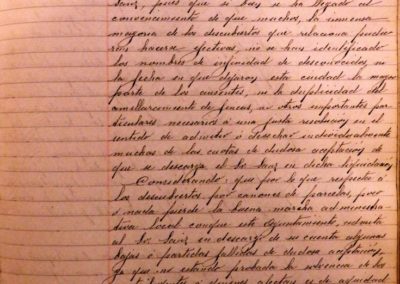 Sainz, pues que si bien se ha llegado al
convencimiento de que muchos, la inmensa
mayoria de los descubiertos que relaciona pudie
ron hacerse efectivos, no se han identificado
los nombres de infinidad de desconocidos, ni
la fecha en que dejaron esta ciudad la mayor
parte de los ausentes, ni la duplicidad del
amillaramiento de fincas, ni otros importantes par
ticulares necesarios a una justa resolucion, en el
sentido de admitir o desechar individualmente
muchas de las cuotas de dudosa aceptacion de
que se descarga el Sr. Sainz en dicha liquidacion.
Considerando: que por lo que respecta á
los descubiertos por canones de parcelas, poco
ó nada puede la buena marcha administra
tiva local conque este Ayuntamiento, admita
al Sr. Sainz en descargo de su cuenta algunas
bajas ó partidas fallidas de dudosa aceptación,
ya que no estando probada la solvencia de los
á quienes afectan es de equidad